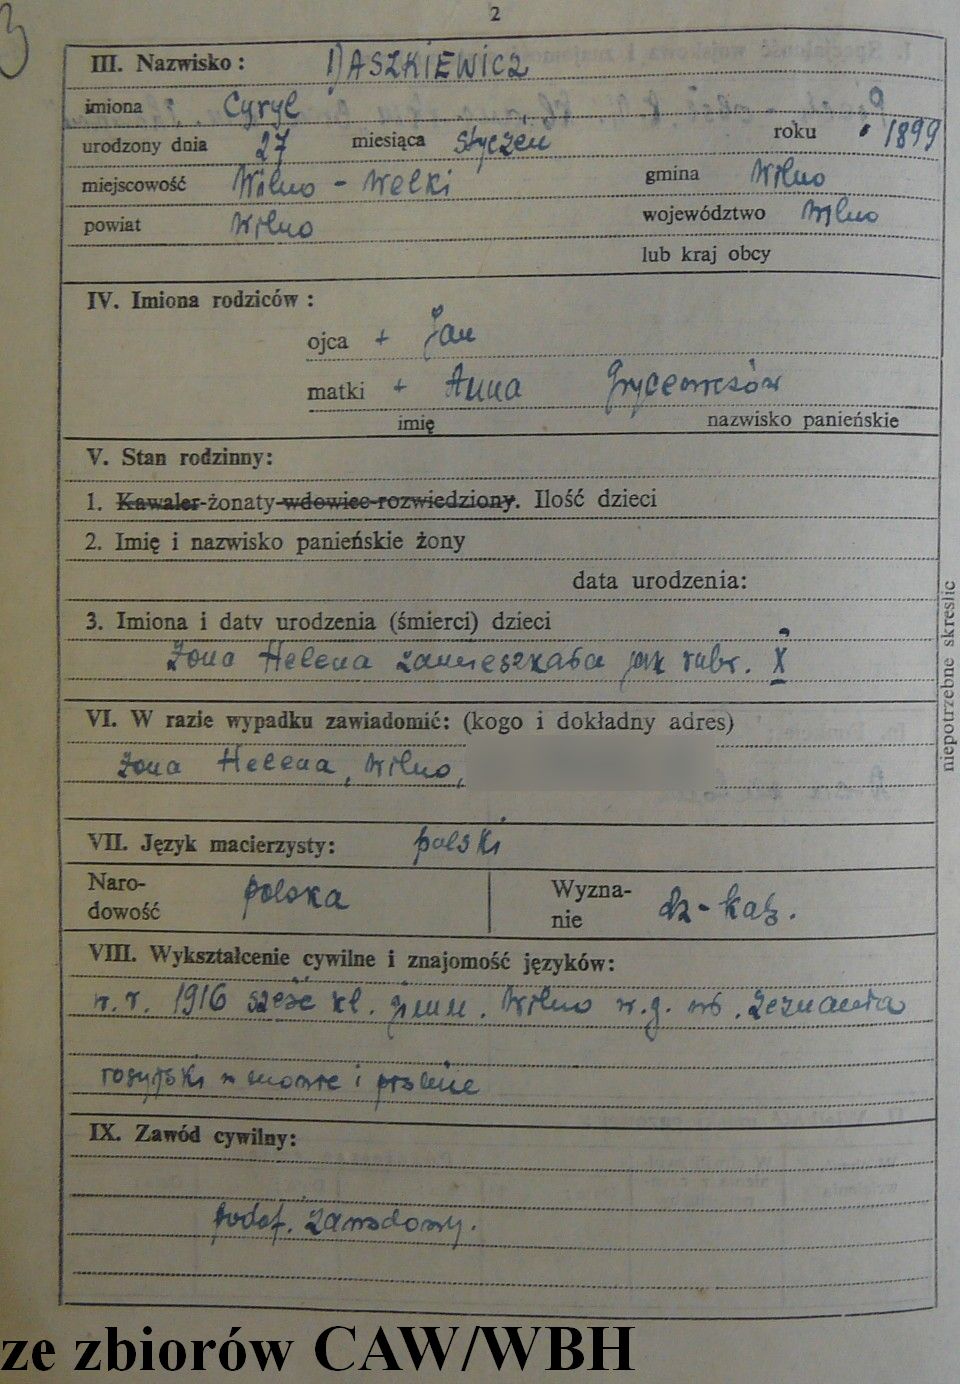 2
3
III. Nazwisko: DASZKIEWICZ
imiona Cyryl
urodzony dnia 27 miesiąca styczeń roku 1899
miejscowość Wilno - Welki gmina Wilno
powiat Wilno województwo Wilno
lub kraj obcy
IV. Imiona rodziców:
ojca + Jan
matki + Anna
imię nazwisko panieńskie
V. Stan rodzinny:
1. Kawaler-żonaty-wdowiec-rozwiedziony. Ilość dzieci
2. Imię i nazwisko panieńskie żony
data urodzenia:
3. Imiona i daty urodzenia (śmierci) dzieci
Żona Helena zamieszkała jak rubr. X
niepotrzebne skreślić
VI. W razie wypadku zawiadomić: (kogo i dokładny adres)
żona Helena, Wilno,
VII. Język macierzysty: polski
Naro-
dowość polska
Wyzna-
nie rz-kat.
VIII. Wykształcenie cywilne i znajomość języków:
w r. 1916 sześć kl. gimn. Wilno w.g. wł. zeznania
rosyjski w mowie i piśmie
IX. Zawód cywilny:
podof. zawodowy.
ze zbiorów CAW/WBH